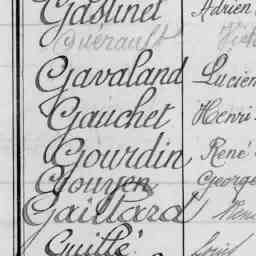 Gastinet Adrien
Guerault
Gavaland Lucien
Gauchet Henri
Gourdin René
Gouyen George
Gaillard
Guitté Louis